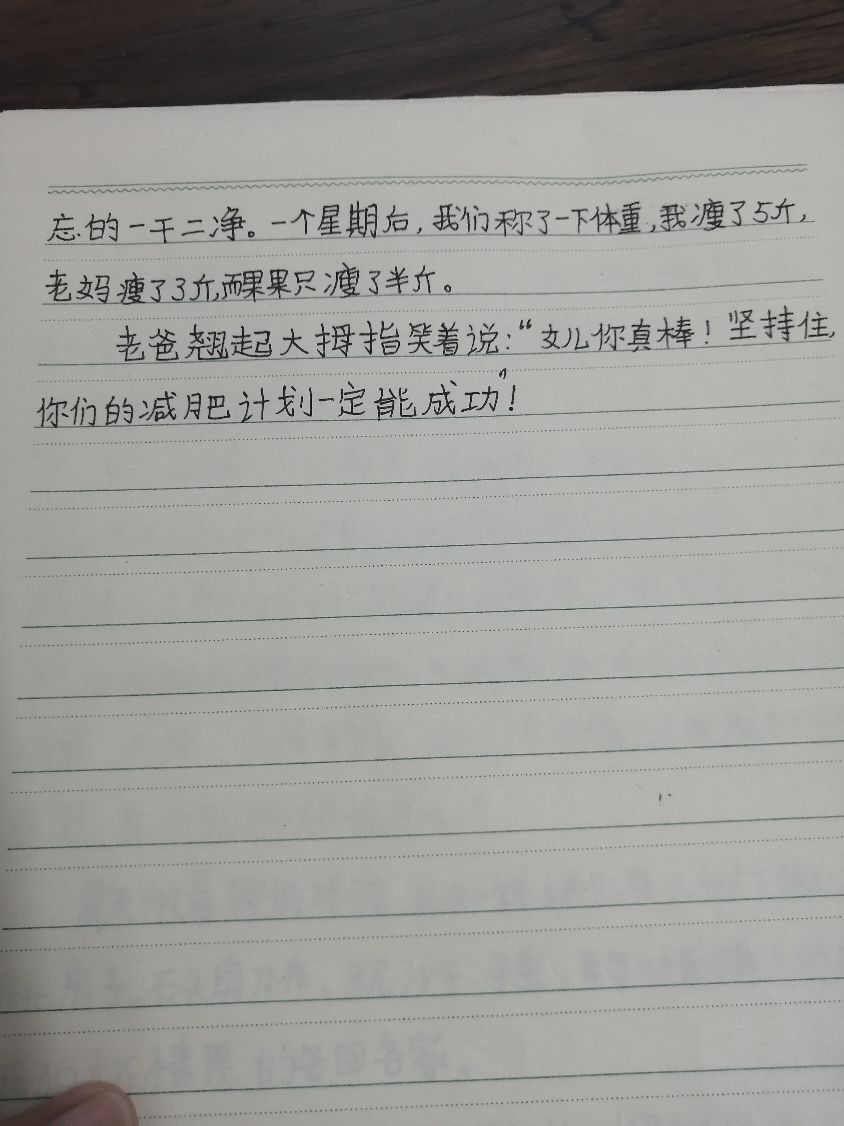 忘的一干二净。一个星期后,我们称了一下体重,我瘦了5斤,
老妈瘦了3斤,而果果只瘦了半斤。
老爸翘起大拇指笑着说:“女儿你真棒!坚持住,
你们的减肥计划一定能成功”!